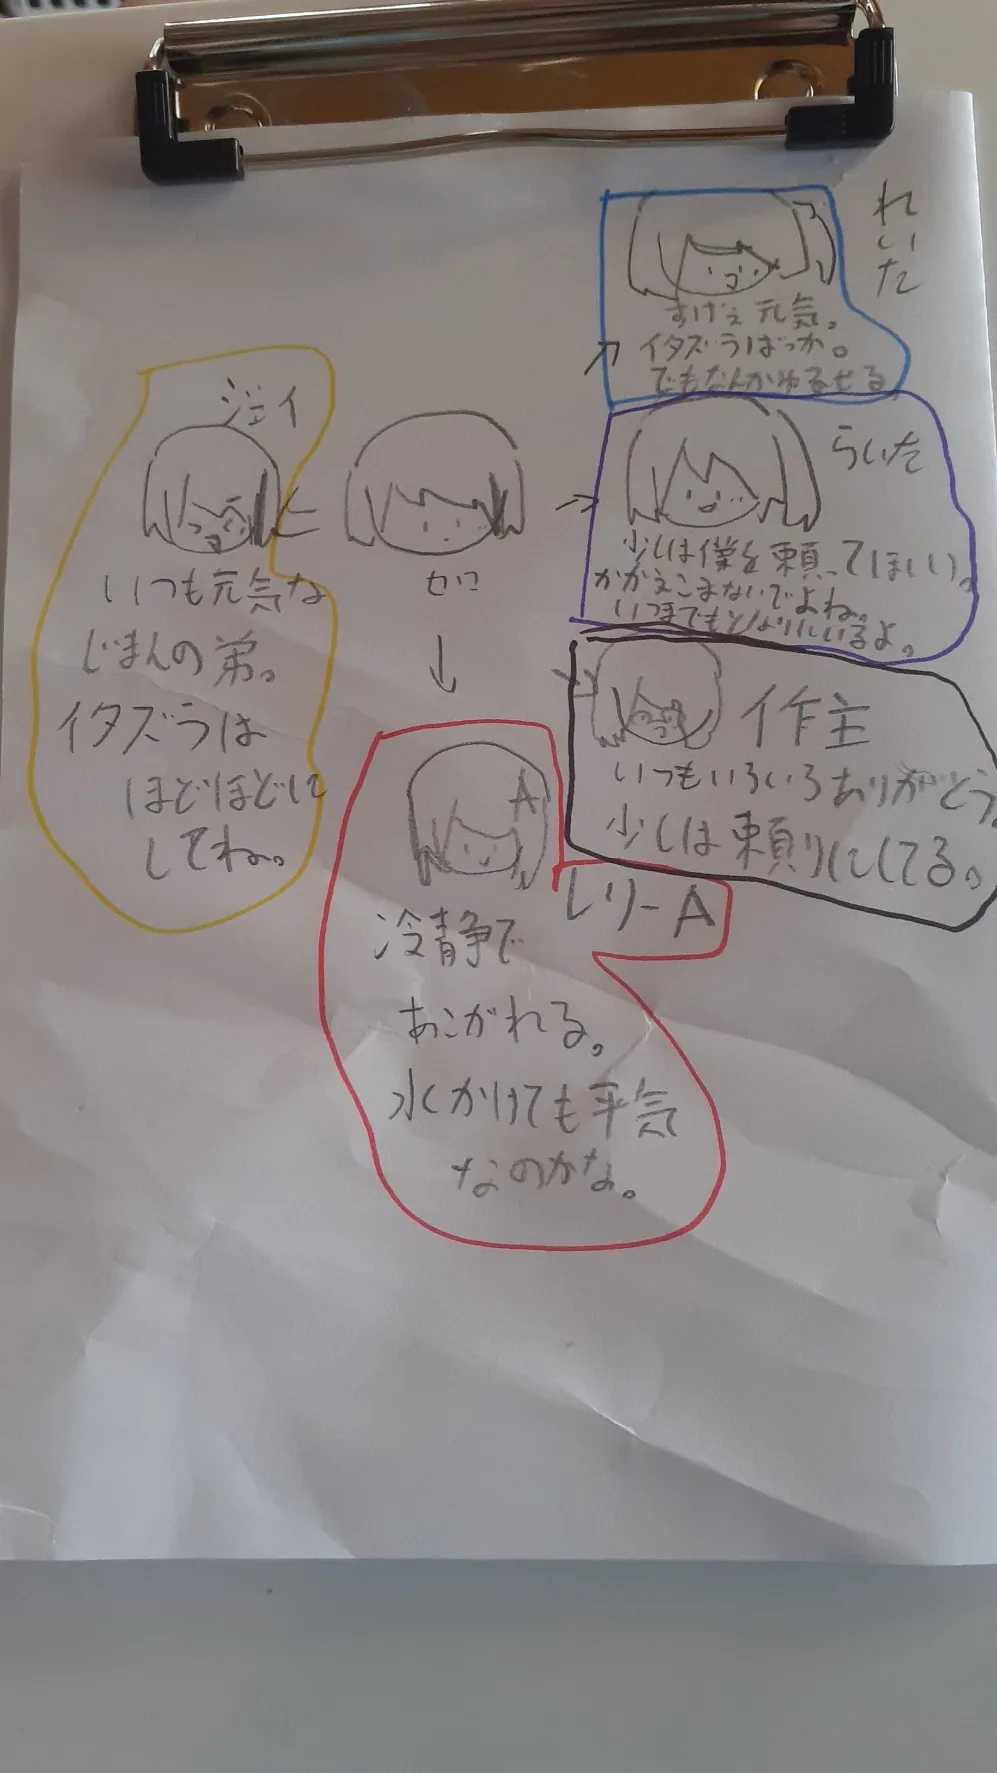 れいた
すげぇ元気。
イタズラばっか。
でもなんかゆるせる
ジェイ
いつも元気な
じまんの弟。
イタズラは
ほどほどに
してね。
らいた
少しは僕を頼ってほしい。
かかえこまないでよね。
いつまでもとなりにいるよ。
作主
いつもいろいろありがとう。
少しは頼りにしてる。
A
レリーA
冷静で
あこがれる。
水かけても平気
なのかな。